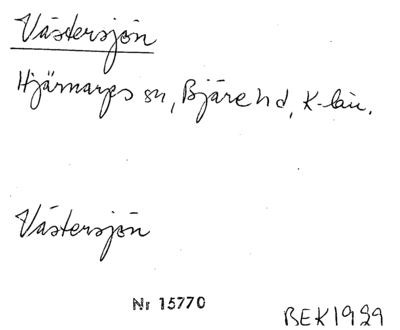 Västersjön
Hjärnarps sn, Bjäre hd, K-län.
Västersjön
Nr 15770
BEK1929